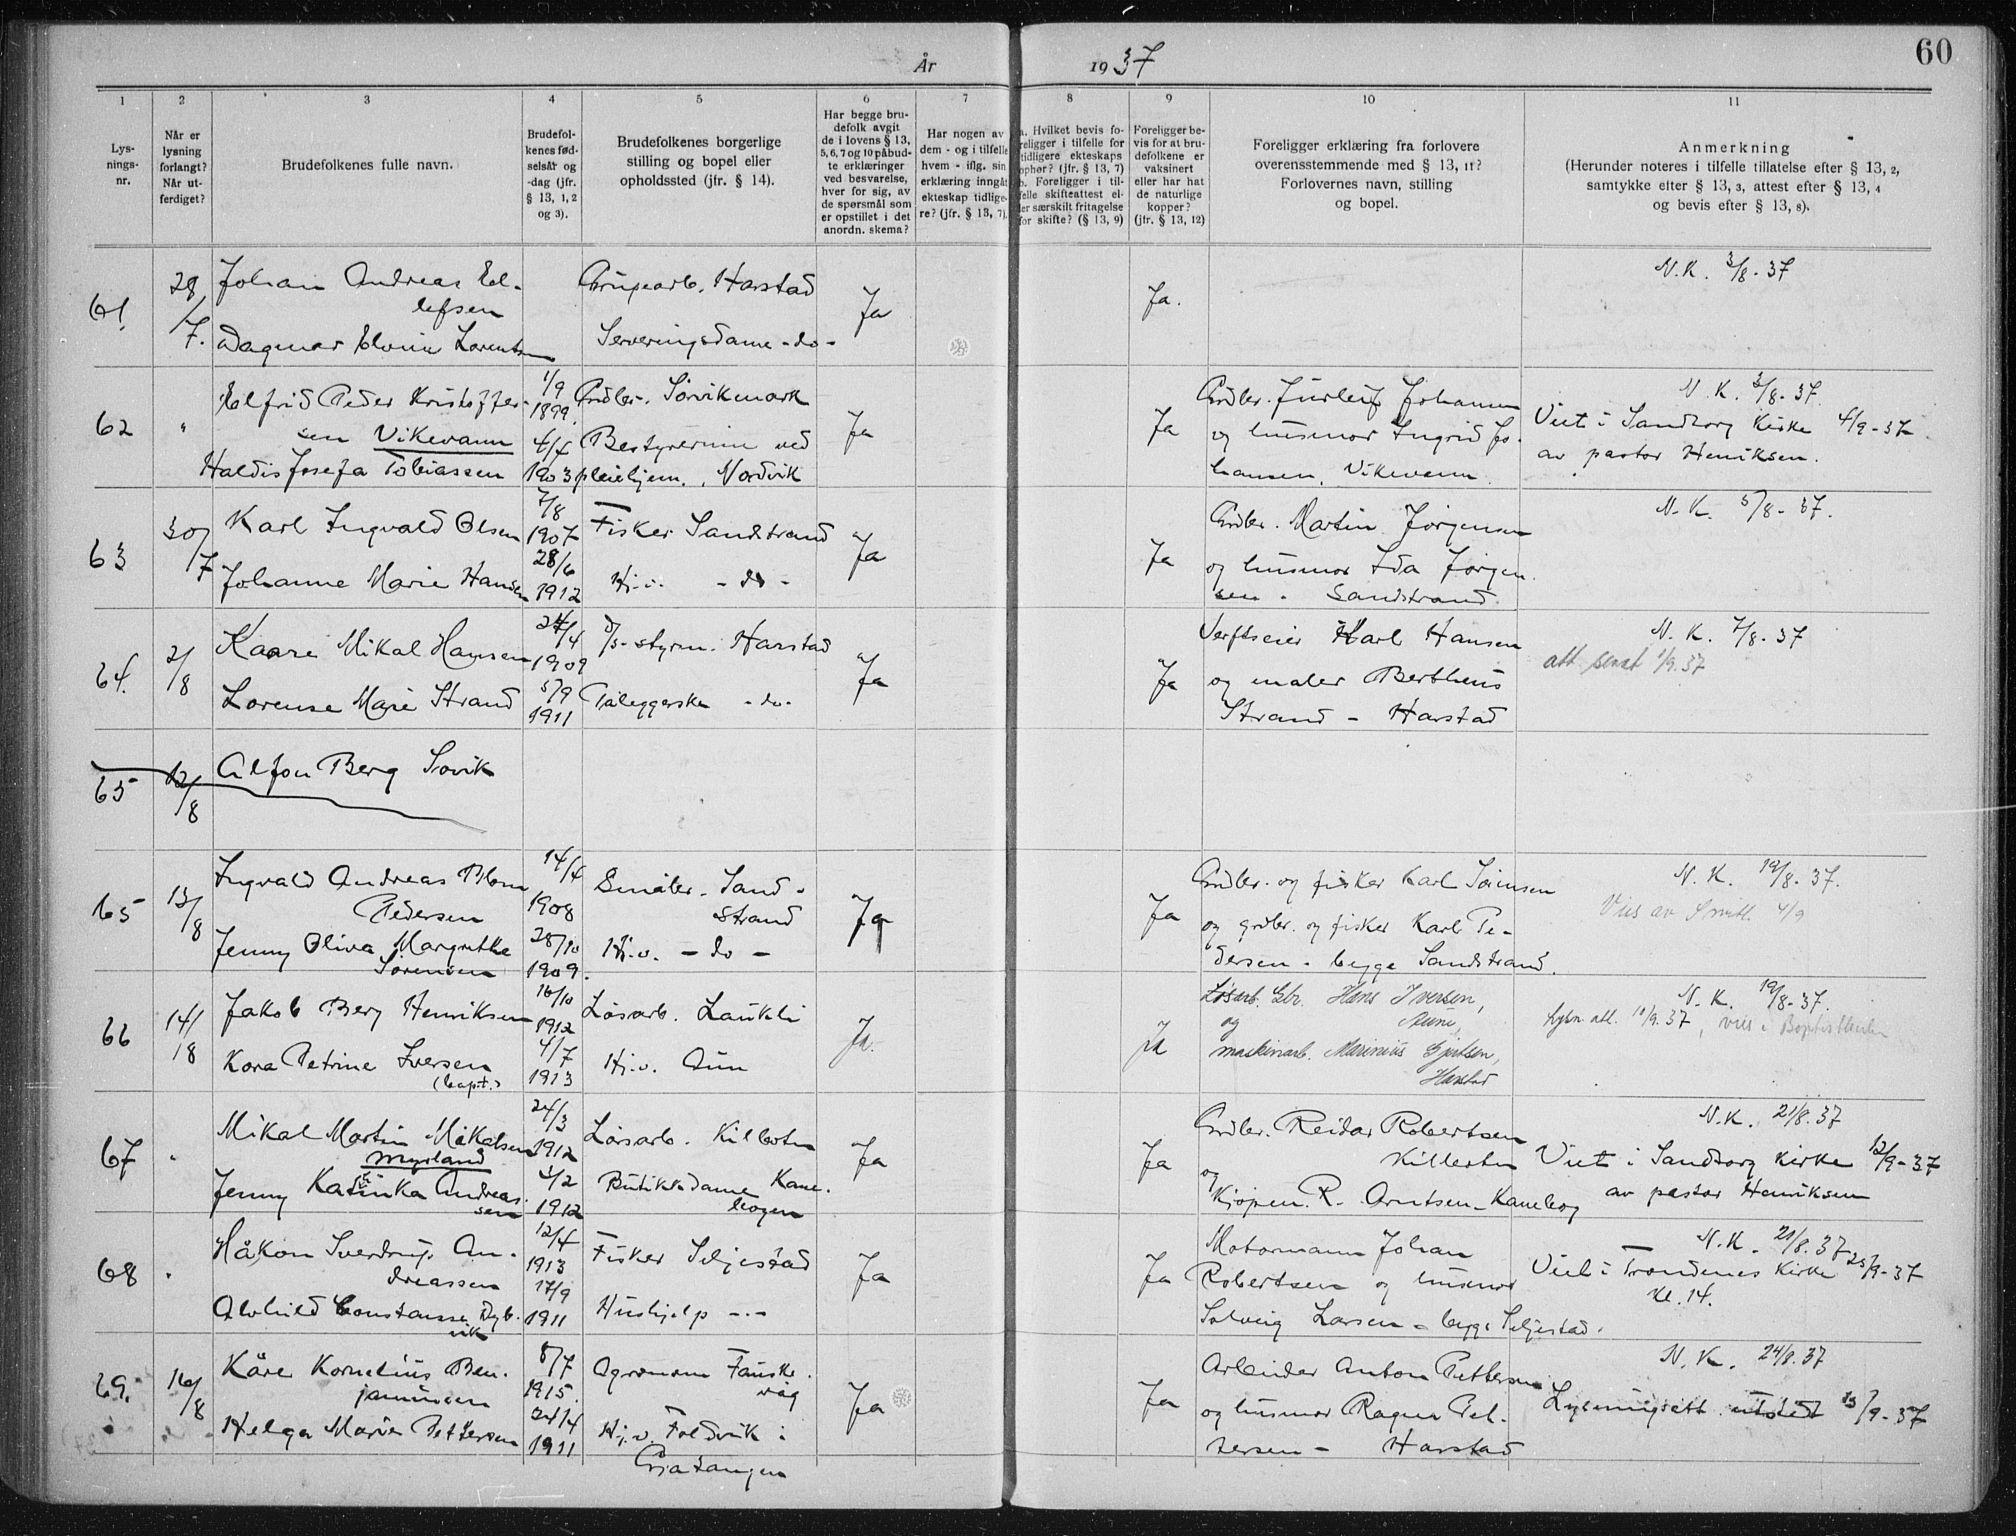 60
År 1937
1 2 3 4 5 6 7 8 9 10 11
Lys-
nings-
nr.
Når er
lysning
forlangt?
Når ut-
ferdiget?
Brudefolkenes fulle navn.
Brudefol-
kenes fød-
selsår og
-dag (jfr.
§ 13, 1, 2
og 3).
Brudefolkenes borgerlige
stilling og bopel eller
opholdssted (jfr. § 14).
Har begge bru-
defolk avgit
de i lovens § 13,
5, 6, 7 og 10 påbud-
te erklæringer
ved besvarelse,
hver for sig, av
de spørsmål som
er opstillet i det
anordn. skema?
Har nogen av
dem - og i tilfelle
hvem - iflg. sin
erklæring inngått
ekteskap tidlige-
re? (jfr. § 13, 7).
a. Hvilket bevis fo-
religger i tilfelle for
tidligere ekteskaps
ophør? (jfr. § 13, 7)
b. Foreligger i til-
felle skifteattest el-
ler særskilt fritagelse
for skifte? (§ 13, 9)
Foreligger be-
vis for at bru-
defolkene er
vaksinert
eller har hat
de naturlige
kopper?
(jfr. § 13, 12)
Foreligger erklæring fra forlovere
overensstemmende med § 13, 11?
Forlovernes navn, stilling
og bopel.
Anmerkning
(Herunder noteres i tilfelle tillatelse efter § 13, 2,
samtykke efter § 13, 3, attest efter § 13, 4
og bevis efter § 13, 8).
61. 28/7. Johan Andreas El-
lefsen
Grupearb. Harstad
Ja Ja.
N.K. 3/8-37
Dagmar Elvine Lorentsen
Serveringsdame -do-
62 " Elfrid Peder Kristoffer-
sen Vikevann
1/9 1899.
Grdbr. Sørvikmark
Ja Ja
Haldis Josefa Tobiassen
4/4 1903
Bestyrerinne ved
pleiehjem, Nordvik
Grdbr. Johansen
og husmor Ingrid Jo-
hansen, Vikevann
N.K. 3/8-37.
Viet i Sandtorg Kirke 4/9-37
av pastor Henriksen.
63 30/7 Karl Ingvald Olsen
7/8 1907
Fisker Sandstrand
Ja Ja
Johanne Marie Hansen
28/6 1912
Hj.v. -do-
Grdbr. Martin Jørgensen
og husmor Ida Jørgen-
sen - Sandstrand
N.K. 5/8-37.
64. 2/8 Kaare Mikal Hansen
24/4 1909
D/S-styrm. Harstad
Ja Ja
Lorense Marie Strand
5/9 1911
Påleggerske -do-
Verftseier Karl Hansen
og maler Bertheus
Strand - Harstad
N.K. 7/8-37
att. sendt 1/9.37
65 12/8 Alfon Berg Sovik
65 13/8 Ingvald Andreas Blom
Pedersen
14/4 1908
Småbr. Sand-
strand
Ja Ja
Jenny Oliva Margrethe
Sørensen
28/10 1909.
Hj.v. -do-
Grdbr. og fisker Karl Sørensen
og grdbr. og fisker Karl Pe-
dersen - begge Sandstrand.
N.K. 19/8-37.
Vies av Smitt. 4/9
66 14/8 Jakob Berg Henriksen
16/10 1912
Løsarb. Laukli
Ja. Ja
Kora Petrine Iversen
(bapt.)
4/7 1913
Hj.v. Aun
Løsarb. Gbr. Hans Iversen,
og Aune,
maskinarb. Marinius Gjertsen,
Harstad
N.K. 19/8-37.
lysn. att. 10/9.37, vies i Baptistkirken
67 " Mikal Martin Mikalsen
Myrland
24/3 1912
Løsarb. Kilbotn
Ja Ja
Jenny Katinka Andreas-
sen
1/2 1912
Butikkdame Kane-
bogen
Grdbr. Reidar Robertsen
Kilbotn
og
Kjøpm. R. Arntsen - Kanebog
N.K. 21/8.37
Viet i Sandtorg kirke 12/9-37
av pastor Henriksen
68 " Håkon Sverdrup An-
dreassen
12/4 1913
Fisker Seljestad
Ja Ja
Alvhild Constanse Dyb-
vik
17/9 1911
Hushjelp -"-
Motormann Johan
Robertsen og husmor
Solveig Larsen - begge Seljestad.
N.K. 21/8.37
Viet i Trondenes Kirke 25/9-37
kl. 14.
69. 16/8 Kåre Kornelius Ben-
jaminsen
8/7 1915.
Agronom Fauske-
våg
Ja Ja
Helga Marie Pettersen
24/4 1911
Hj.v. Foldvik i
Gratangen
Arbeider Anton Pettersen
og husmor Ragna Pet-
tersen - Harstad
N.K. 24/8.37
Lysningsatt. utstedt 13/9-37